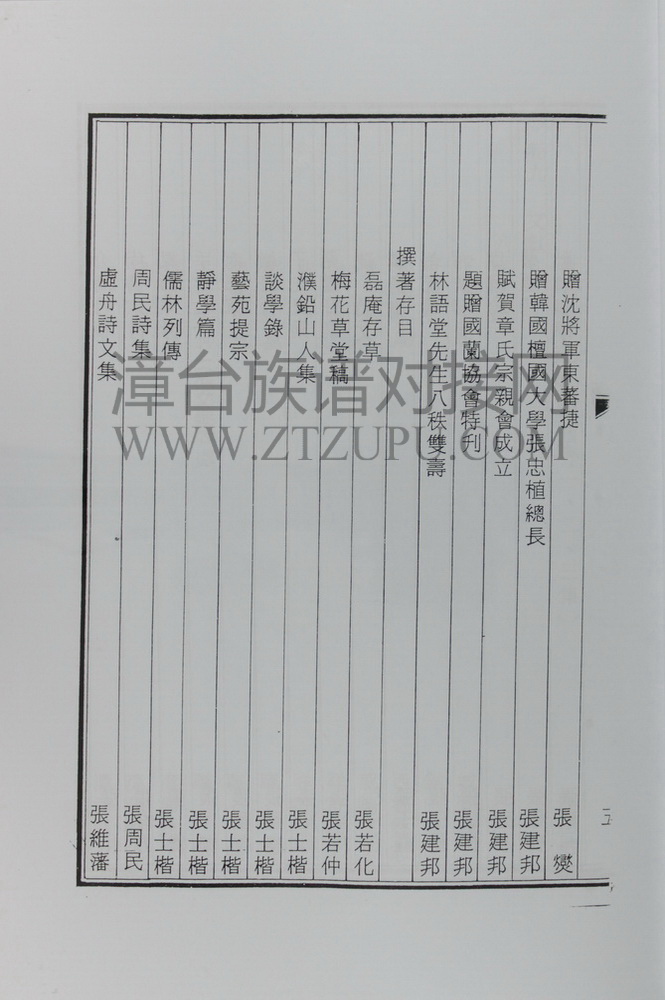 贈沈將軍東蕃捷 張燮
贈韓國檀國大學張忠植總長 張建邦
賦賀章氏宗親會成立 張建邦
題贈國蘭協會特刊 張建邦
林語堂先生八秩雙壽 張建邦
撰著存目
磊庵存草 張若化
梅花草堂稿 張若仲
濮鉛山人集 張士楷
談學錄 張士楷
藝苑提宗 張士楷
靜學篇 張士楷
儒林列傳 張士楷
周民詩集 張周民
虛舟詩文集 張維藩
漳台族谱对接网
WWW.ZTZUPU.COM